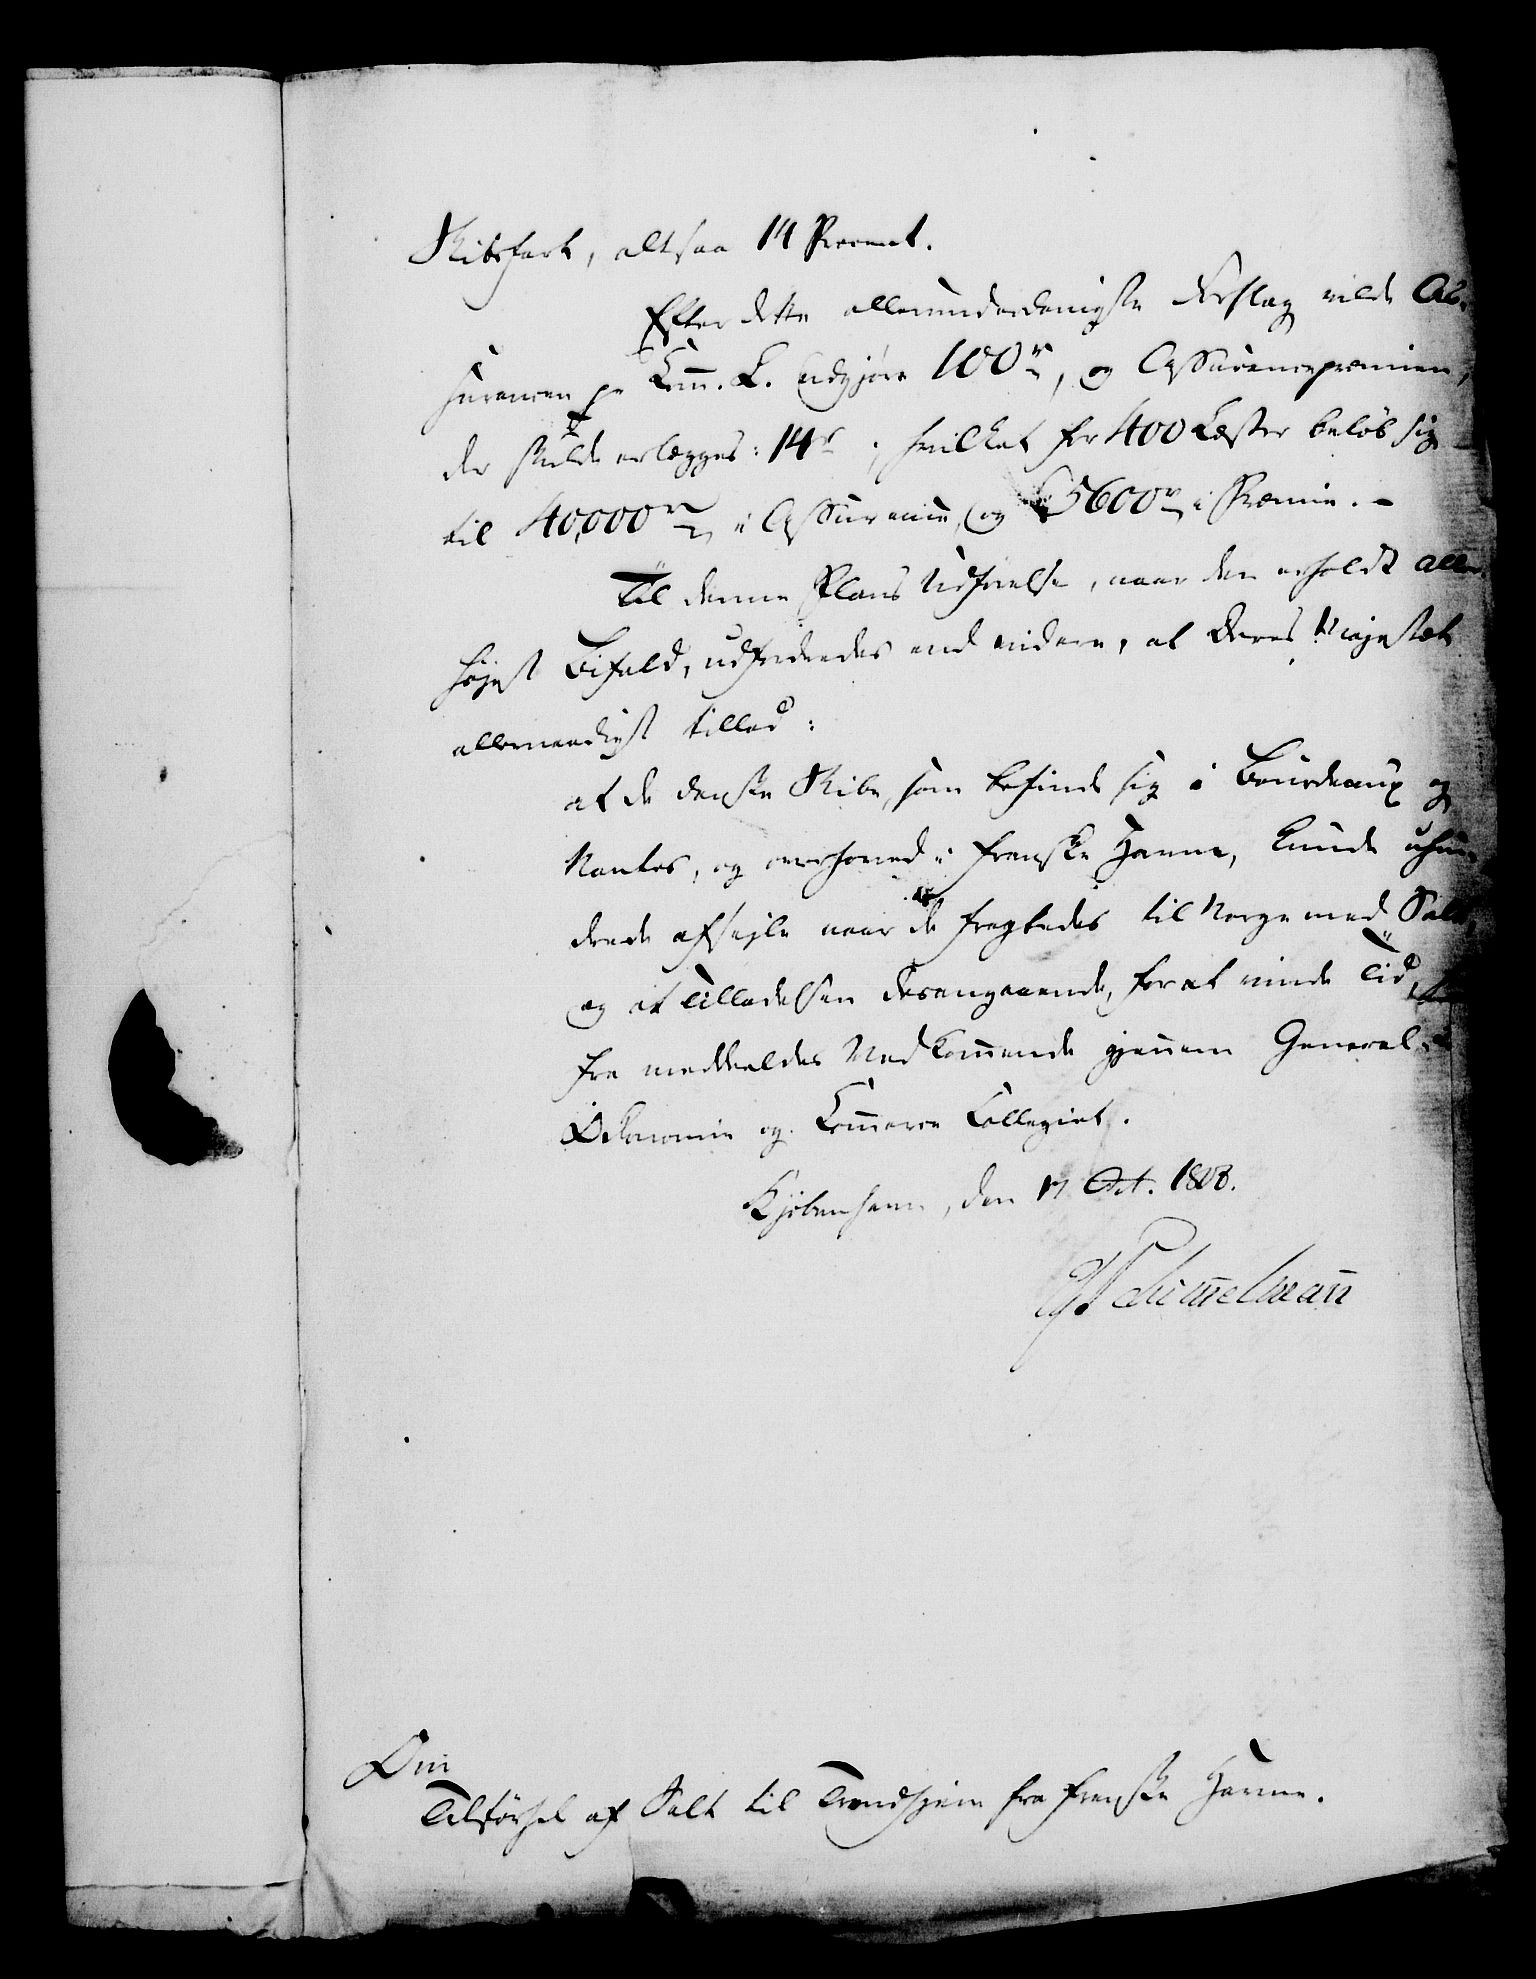 Skibsfart, altsaa 14 Procent.
Efter dette allerunderdanigste Forslag vilde As-
surancen pr Com. L. udgjøre 100 rd, og Assurancepræmien,
der skulde erlægges: 14 r; hvilket for 400 Læster beløb sig
til 40,000 rd i Assurance, og 5600 rd i Præmie. -
Til denne Plans Udførelse, naar den erholdt aller-
højst Bifald, udfordredes end videre, at Deres Majestæt
allernaadigst tillod:
at de danske Skibe, som befinde sig i Bourdeaux og
Nantes, og overhoved i franske Havne, kunde uhin-
drede afsejle naar de fragtedes til Norge med Salt,
og at Tilladelsen desangaaende, for at vinde Tid,
fra meddeeldes Vedkommende gjennem General-
Oekonomie og Commerce Collegiet.
Kjøbenhavn, den 17 Oct. 1808.
Schimmelmann
Om
Tilførsel af Salt til Trondhjem fra franske Havne.